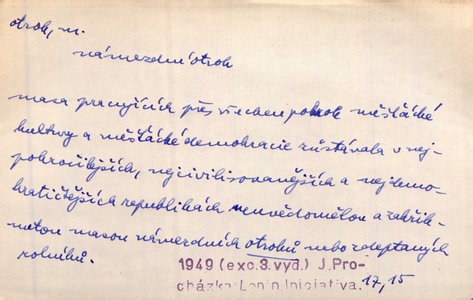 otrok, m.
námezdní otrok
masa pracujících přes všechen pokrok měšťácké
kultury a měšťácké demokracie zůstávala v nej-
pokročilejších, nejcivilisovanějších a nejdemo-
kratičtějších republikách neuvědomělou a zakřik-
nutou masou námezdních otroků nebo zdeptaných
rolníků.
1949 (exc.3.vyd.) J.Pro-
cházka:Lenin,Iniciativa. 17,15